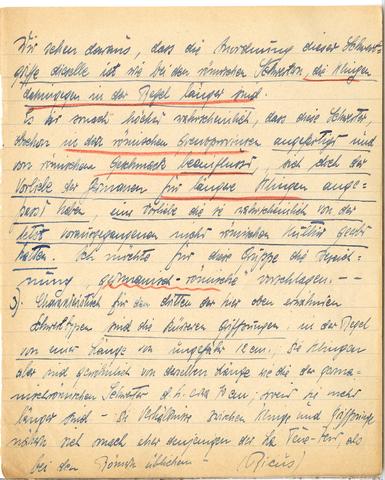 Wir sehen daraus, dass die Anordnung dieser Schwert-
griffe dieselbe ist wie bei den römischen Schwerten, die Klingen
dahingegen in der Regel länger sind.
Es ist wohl höchst wahrscheinlich, dass diese Schwerter,
in den römischen Grenzprovinzen angefertigt und
von römischem Geschmack beeinflusst, sich doch der
Vorliebe der Germanen für längere Klingen ange-
passt haben, eine Vorliebe die sie wahrscheinlich von der
vorausgegangenen nicht römischen Kultur geerbt
hatten. Ich möchte für diese Gruppe die Bezeich-
nung, "germanisch-römische" vorschlagen. - -
3). Charakteristisch für den dritten der hier oben erwähnten
Schwerttypen sind die Griffzungen, in der Regel
von einer Länge von ungefähr 12 cm. Die Klingen
aber sind gewöhnlich von derselben Länge wie die der germa-
nisch-römischen Schwerter d.h. cca 70 cm; wenn sie nicht
länger sind - Die Verhältnisse zwischen Klinge und Grifflänge
nähern sich mehr denjenigen der La Tène-Zeit, als
bei den Römern üblichen -